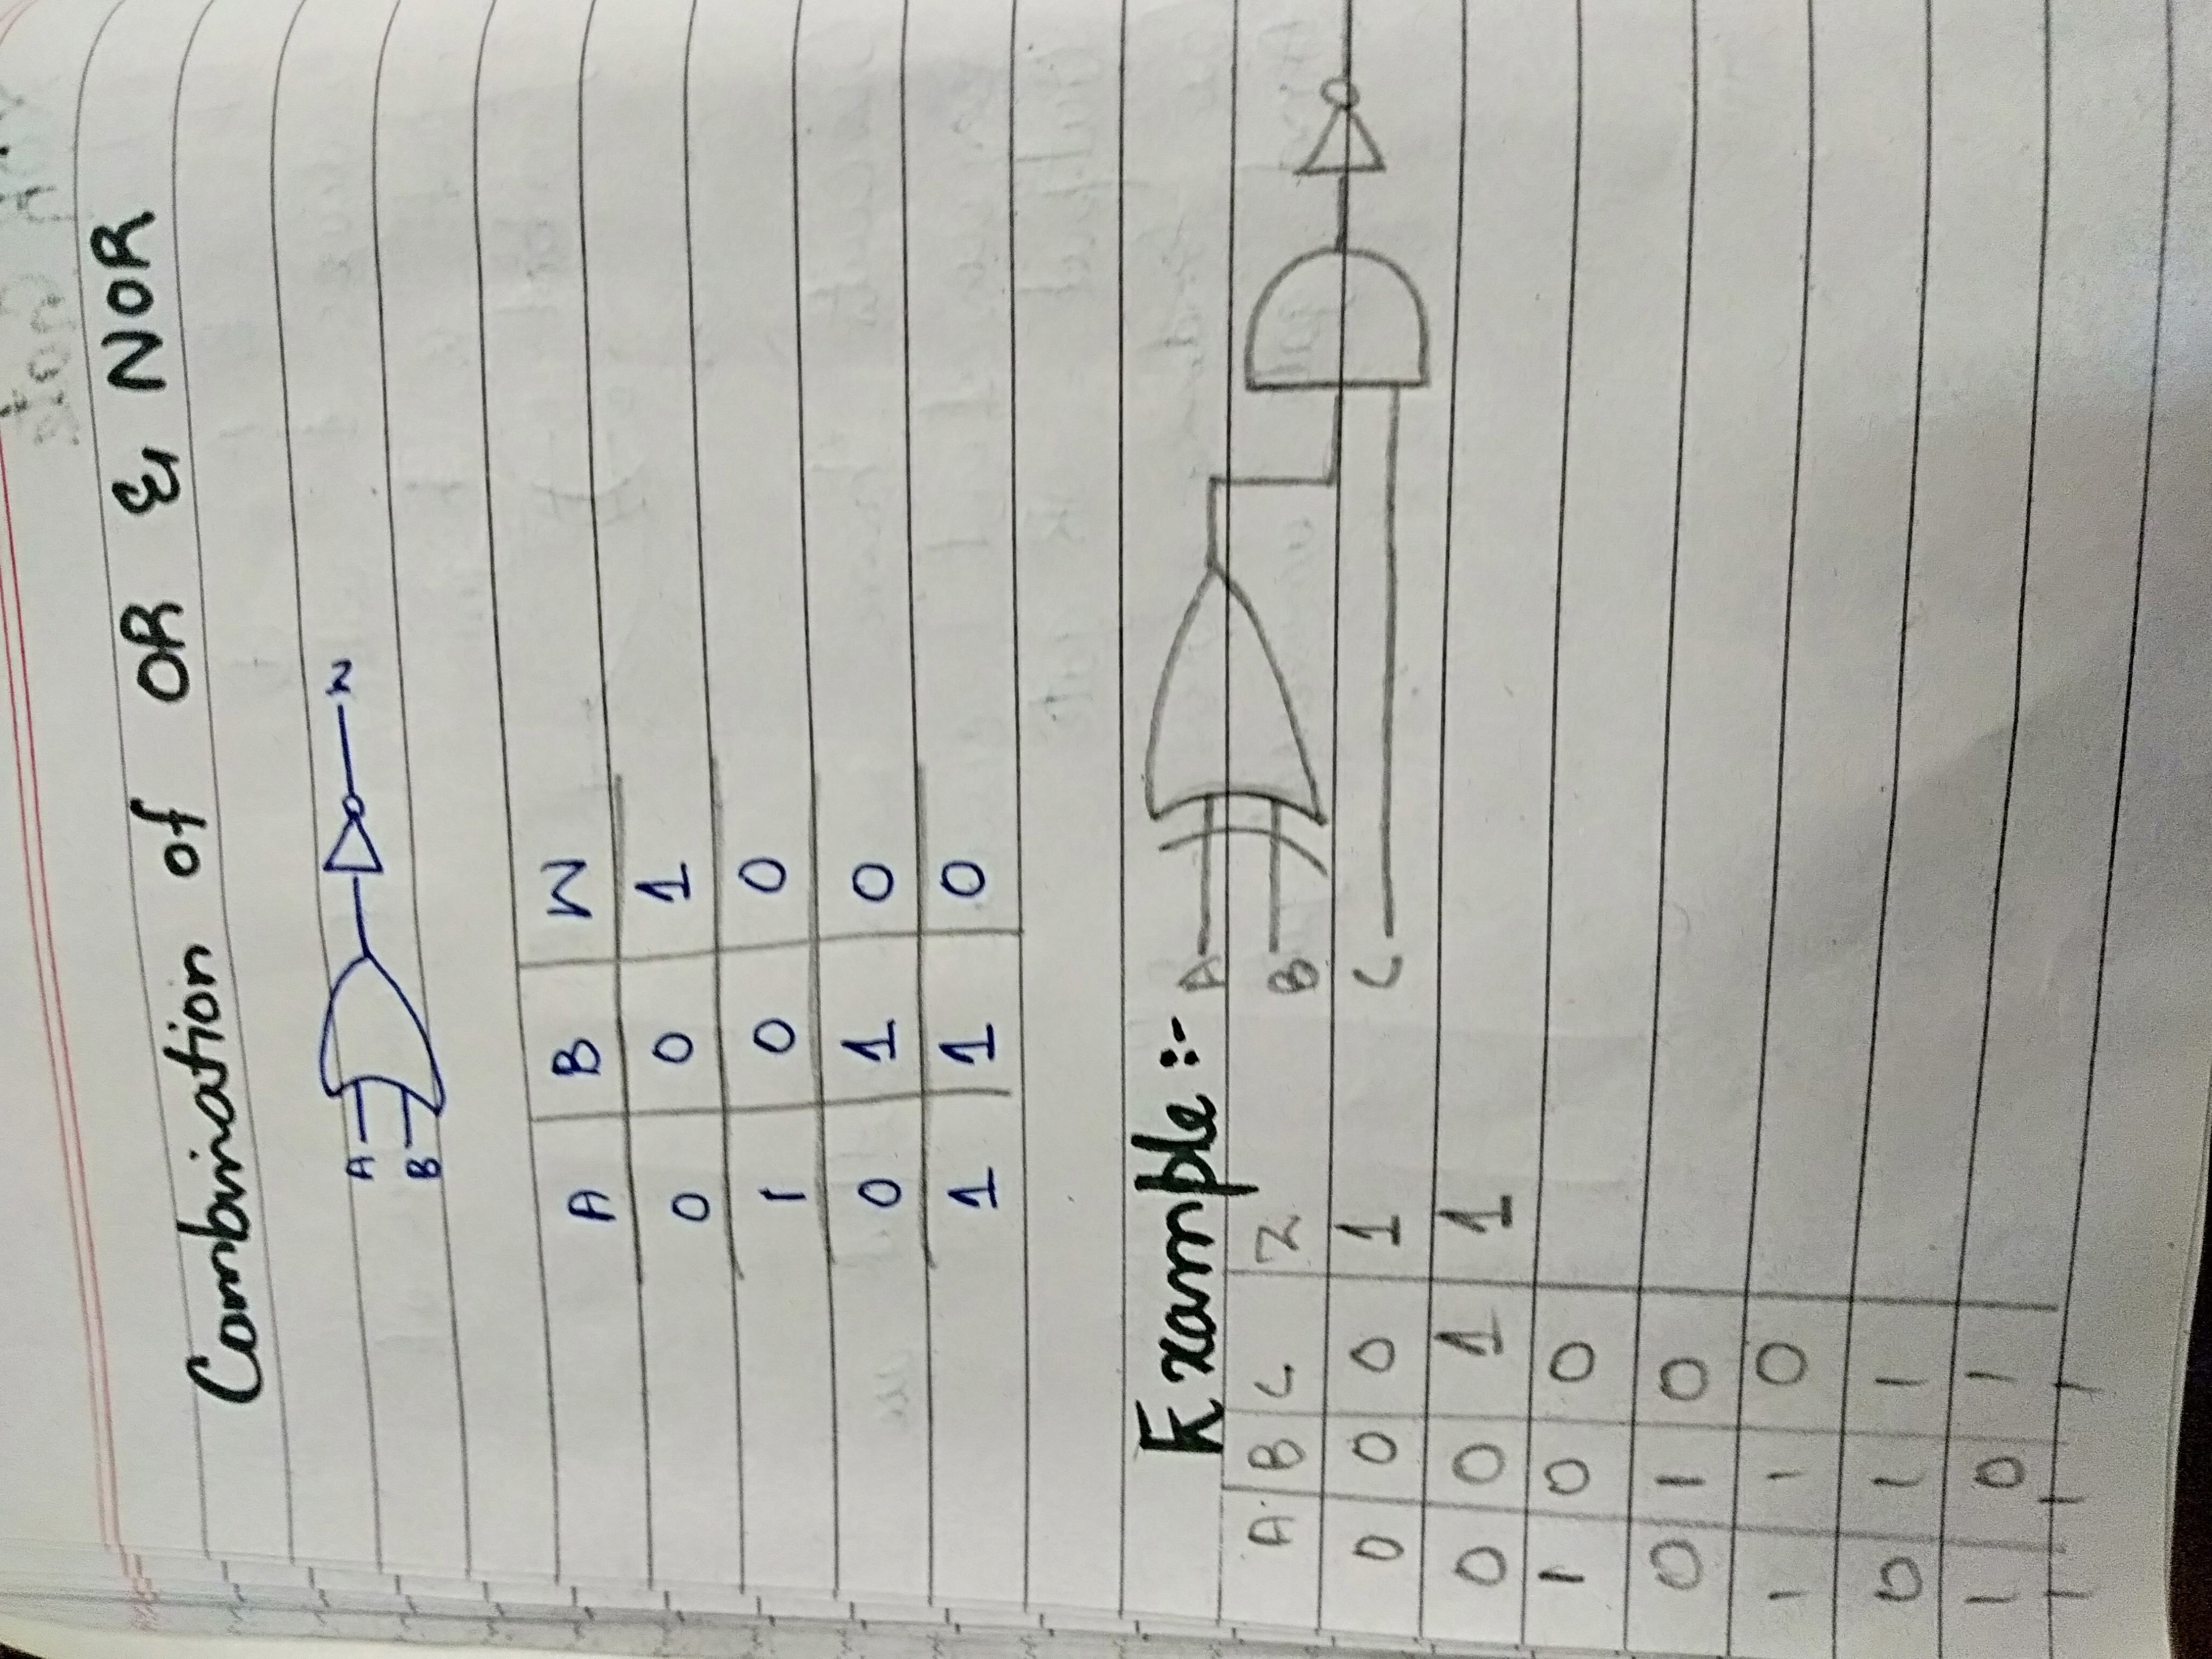 Combination of OR & NOR
A
B
Z
A B W
0 0 1
1 0 0
0 1 0
1 1 0
Example :-
A
B
C
A B C Z
0 0 0 1
0 0 1 1
1 0 0
0 1 0
1 1 0
0 1 1
1 0 1
1 1 1